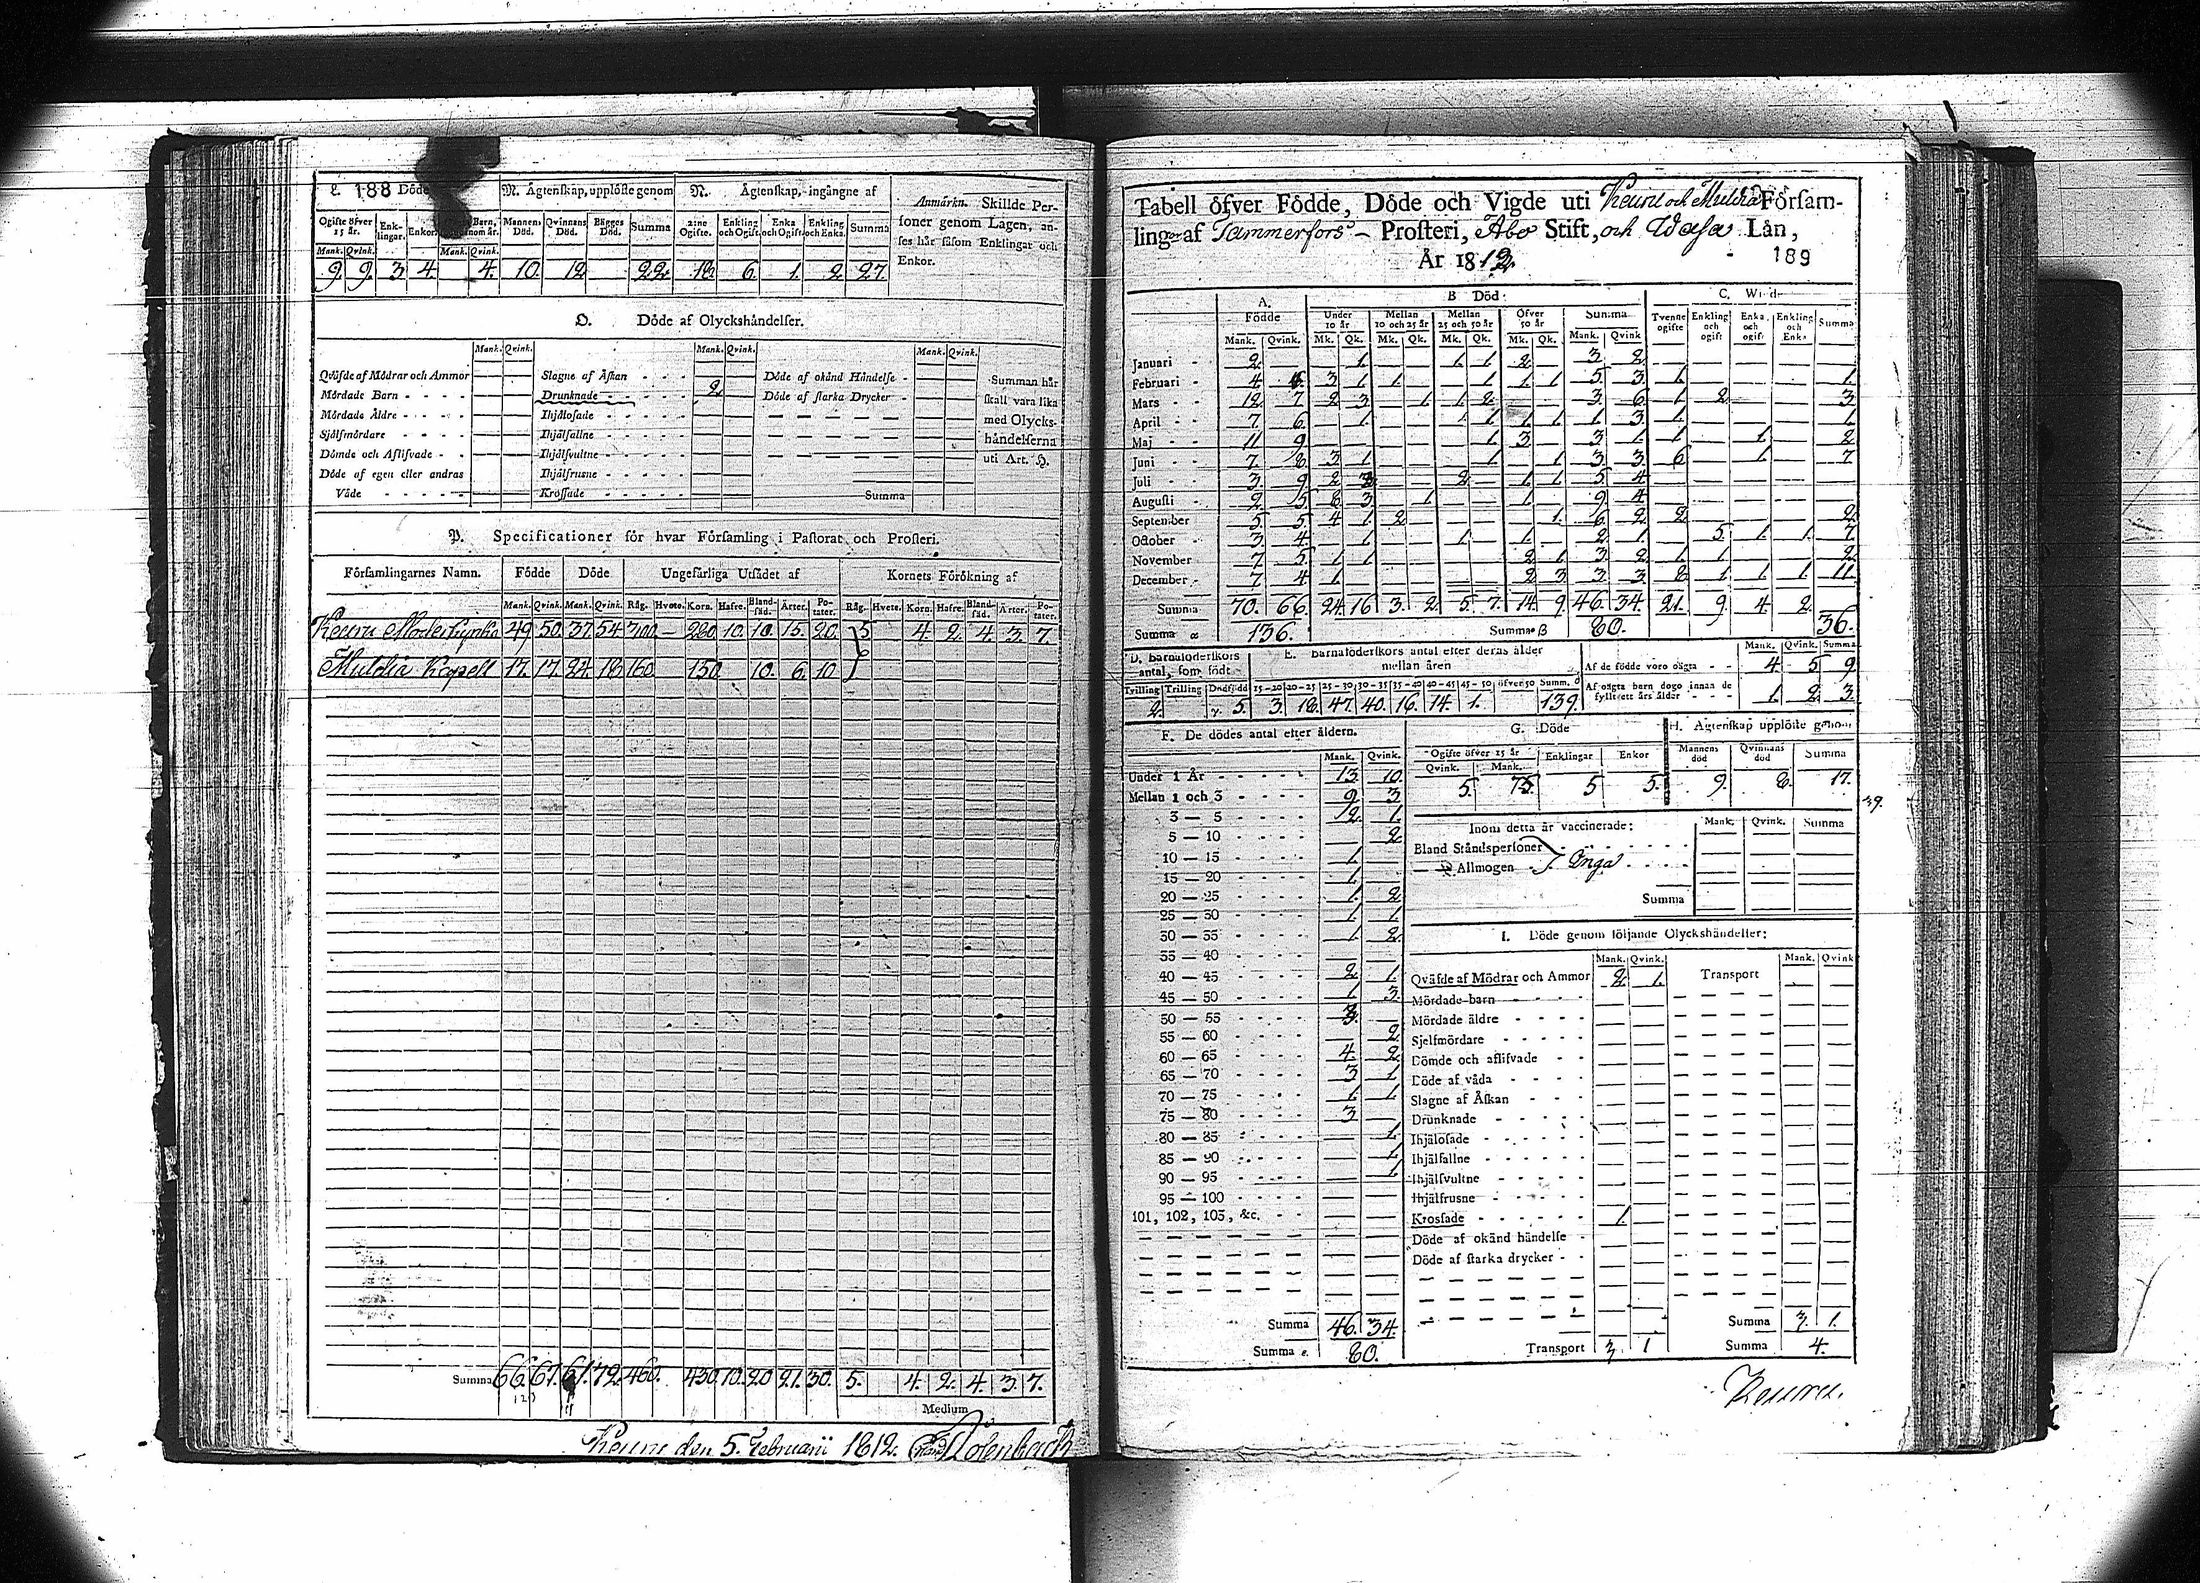 L. 188 Döde
M. Ågtenskap, upplöste genom
N. Ågtenskap, ingångne af
Anmärkn. Skillde Per-
soner genom Lagen, an-
ses hår såsom Enklingar och
Enkor.
Ogifte öfver 15 år. Enk-lingar. Enkor Barn, inom år. Mannens Död. Qvinnans Död. Bägges Död. Summa 2:ne Ogifte. Enkling och Ogift. Enka och Ogift Enkling och Enka. Summa
Mank. Qvink. Mank. Qvink.
9. 9. 3. 4. 4. 10. 12 22. 18 6. 1. 2. 27.
O. Döde af Olyckshåndelser.
Mank. Qvink. Mank. Qvink. Mank. Qvink.
Qväfde af Mödrar och Ammor
Mördade Barn
Mördade Äldre
Sjålfmördare
Dömde och Aflifvade
Döde af egen eller andras
Våde
Slagne af Åskan
Drunknade 2.
Ihjålosade
Ihjälfallne
Ihjälsvultne
Ihjälfrusne
Krossade
Döde af okänd Håndelse
Döde af starka Drycker
Summa
Summan hår
skall vara lika
med Olycks-
håndelserna
uti Art. H.
P. Specificationer för hvar Församling i Pastorat och Prosteri.
Församlingarnes Namn. Födde Döde Ungefärliga Utsädet af Kornets Förökning af
Mank. Qvink. Mank. Qvink. Råg. Hvete. Korn. Hafre. Bland-såd. Ärter. Po-tater. Råg. Hvete. Korn. Hafre. Bland-såd. Ärter. Po-tater.
Keuru Moderkyrka 49. 50. 37. 54. 300. 280. 10. 10. 15. 20. 5. 4. 2. 4. 3. 7.
Multia Kapell 17. 17. 24. 18. 160. 150. 10. 6. 10.
Summa 66. 67. 61. 72. 460. 430. 10. 20. 21. 30. 5. 4. 2. 4. 3. 7.
Medium
Keuru den 5. Februarii 1812.
Tabell öfver Födde, Döde och Vigde uti Keuru och Multia Försam-
lingar af Tammerfors Prosteri, Åbo Stift, och Wasa Lån,
År 1812.
189
A. Födde B Död C. Wigde
Under 10 år Mellan 10 och 25 år Mellan 25 och 50 år Öfver 50 år Summa Tvenne ogifte Enkling och ogift Enka och ogift Enkling och Enka Summa
Mank. Qvink. Mk. Qk. Mk. Qk. Mk. Qk. Mk. Qk. Mank. Qvink
Januari 2. 1. 1. 1 2. 3 2.
Februari 4 6. 3 1 1. 1 1. 1 5. 3. 1. 1.
Mars 12. 7 2 3 1. 1. 2. 3 6. 1 2. 3
April 7 6. 1. 1. 1. 1 1. 3. 1. 1.
Maj 11 9. 1. 3. 3 1. 1 1. 2
Juni 7. 8. 3 1. 1 1. 3 3. 6. 1. 7.
Juli 3. 9. 2 3. 2. 1. 1. 5. 4
Augusti 2. 5. 8. 3. 1. 1. 9. 4
September 5. 5. 4 1. 2. 1. 6. 2. 2. 2.
October 3 4. 1. 1. 1. 2. 1. 5. 1. 1. 7.
November 7 5. 1 1. 2 1 3 2. 1. 1. 2.
December 7 4 1. 2. 3 3. 3. 8. 1. 1. 1. 11.
Summa 70. 66. 24. 16. 3. 2. 5. 7. 14. 9. 46. 34. 21. 9. 4. 2.
Summa α 136. Summa β 80. 36.
D. Barnaföderskors antal, som födt
Tvilling Trilling Dödfödd
2. 5.
E. Barnaföderskors antal efter deras ålder mellan åren
15—20 20—25 25—30 30—35 35—40 40—45 45—50 öfver 50 Summ.
3. 18. 47. 40. 16. 14. 1. 139.
Mank. Qvink. Summa
Af de födde voro oägta 4 5 9
Af oägta barn dogo innan de
fyllt ett års ålder 1. 2. 3.
F. De dödes antal efter åldern.
Mank. Qvink.
Under 1 År 13 10.
Mellan 1 och 3 9. 3.
3 — 5 2. 1.
5 — 10 2.
10 — 15 1.
15 — 20 1.
20 — 25 1. 2
25 — 30 1. 1.
30 — 35 1. 2.
35 — 40
40 — 45 2. 1.
45 — 50 1. 3.
50 — 55 3.
55 — 60 2.
60 — 65 4. 2.
65 — 70 3 1.
70 — 75 1. 1.
75 — 80 3
80 — 85 1.
85 — 90 1.
90 — 95 1.
95 — 100
101, 102, 103, &c.
Summa 46. 34.
Summa ε. 80.
G. Döde
Ogifte öfver 15 år Enklingar Enkor
Qvink. Mank.
5. 5 5.
H. Ägtenskap upplöste genom
Mannens död Qvinnans död Summa
9. 8. 17.
Inom detta år vaccinerade: Mank. Qvink. Summa
Bland Ståndspersoner
— Allmogen Inga
Summa
I. Döde genom följande Olyckshändelser:
Mank. Qvink. Mank. Qvink
Qväfde af Mödrar och Ammor 2. 1. Transport
Mördade barn
Mördade äldre
Sjelfmördare
Dömde och aflifvade
Döde af våda
Slagne af Åskan
Drunknade
Ihjälosade
Ihjälfallne
Ihjälsvultne
Ihjälfrusne
Krossade 1.
Döde af okänd händelse
Döde af starka drycker
Summa 3. 1.
Transport 3 1 Summa 4.
Keuru.